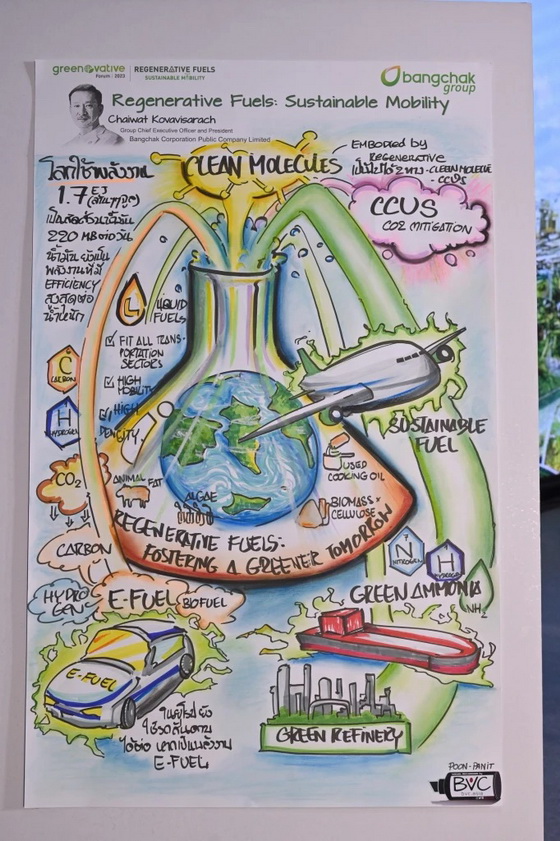 greenovative
Forum | 2023
REGENERATIVE FUELS
SUSTAINABLE MOBILITY
bangchak
group
Regenerative Fuels: Sustainable Mobility
Chaiwat Kovavisarach
Group Chief Executive Officer and President
Bangchak Corporation Public Company Limited
โลกใช้พลังงาน
1.7 E3
เป็นสัดส่วนน้ำมัน
220 MBต่อวัน
น้ำมัน ยังเป็น
พลังงานที่มี
EFFICIENCY
สูงสุดต่อ
น้ำหนัก
CLEAN MOLECULES
EMBODIED by
REGENERATIVE
เป็นไปได้ 2 ทาง - CLEAN MOLECULE
- CCUS
CCUS
CO2 MITIGATION
L
LIQUID
FUELS
FIT ALL TRANS-
PORTATION
SECTORS
HIGH
MOBILITY
HIGH
DENSITY
C
CARBON
H
HYDROGEN
CO2
CARBON
HYDRO
GEN
E-FUEL
BIOFUEL
SUSTAINABLE
FUEL
USED
COOKING OIL
ANIMAL FAT
ALGAE
BIOMASS -
CELLULOSE
REGENERATIVE FUELS:
FOSTERING A GREENER TOMORROW
N
NITROGEN
H
HYDROGEN
GREEN AMMONIA
NH3
E-FUEL
GREEN REFINERY
ในยุโรป ยัง
ใช้รถสันดาป
ได้ต่อ หากเป็นพลังงาน
E-FUEL
POON-PANIT
BVC